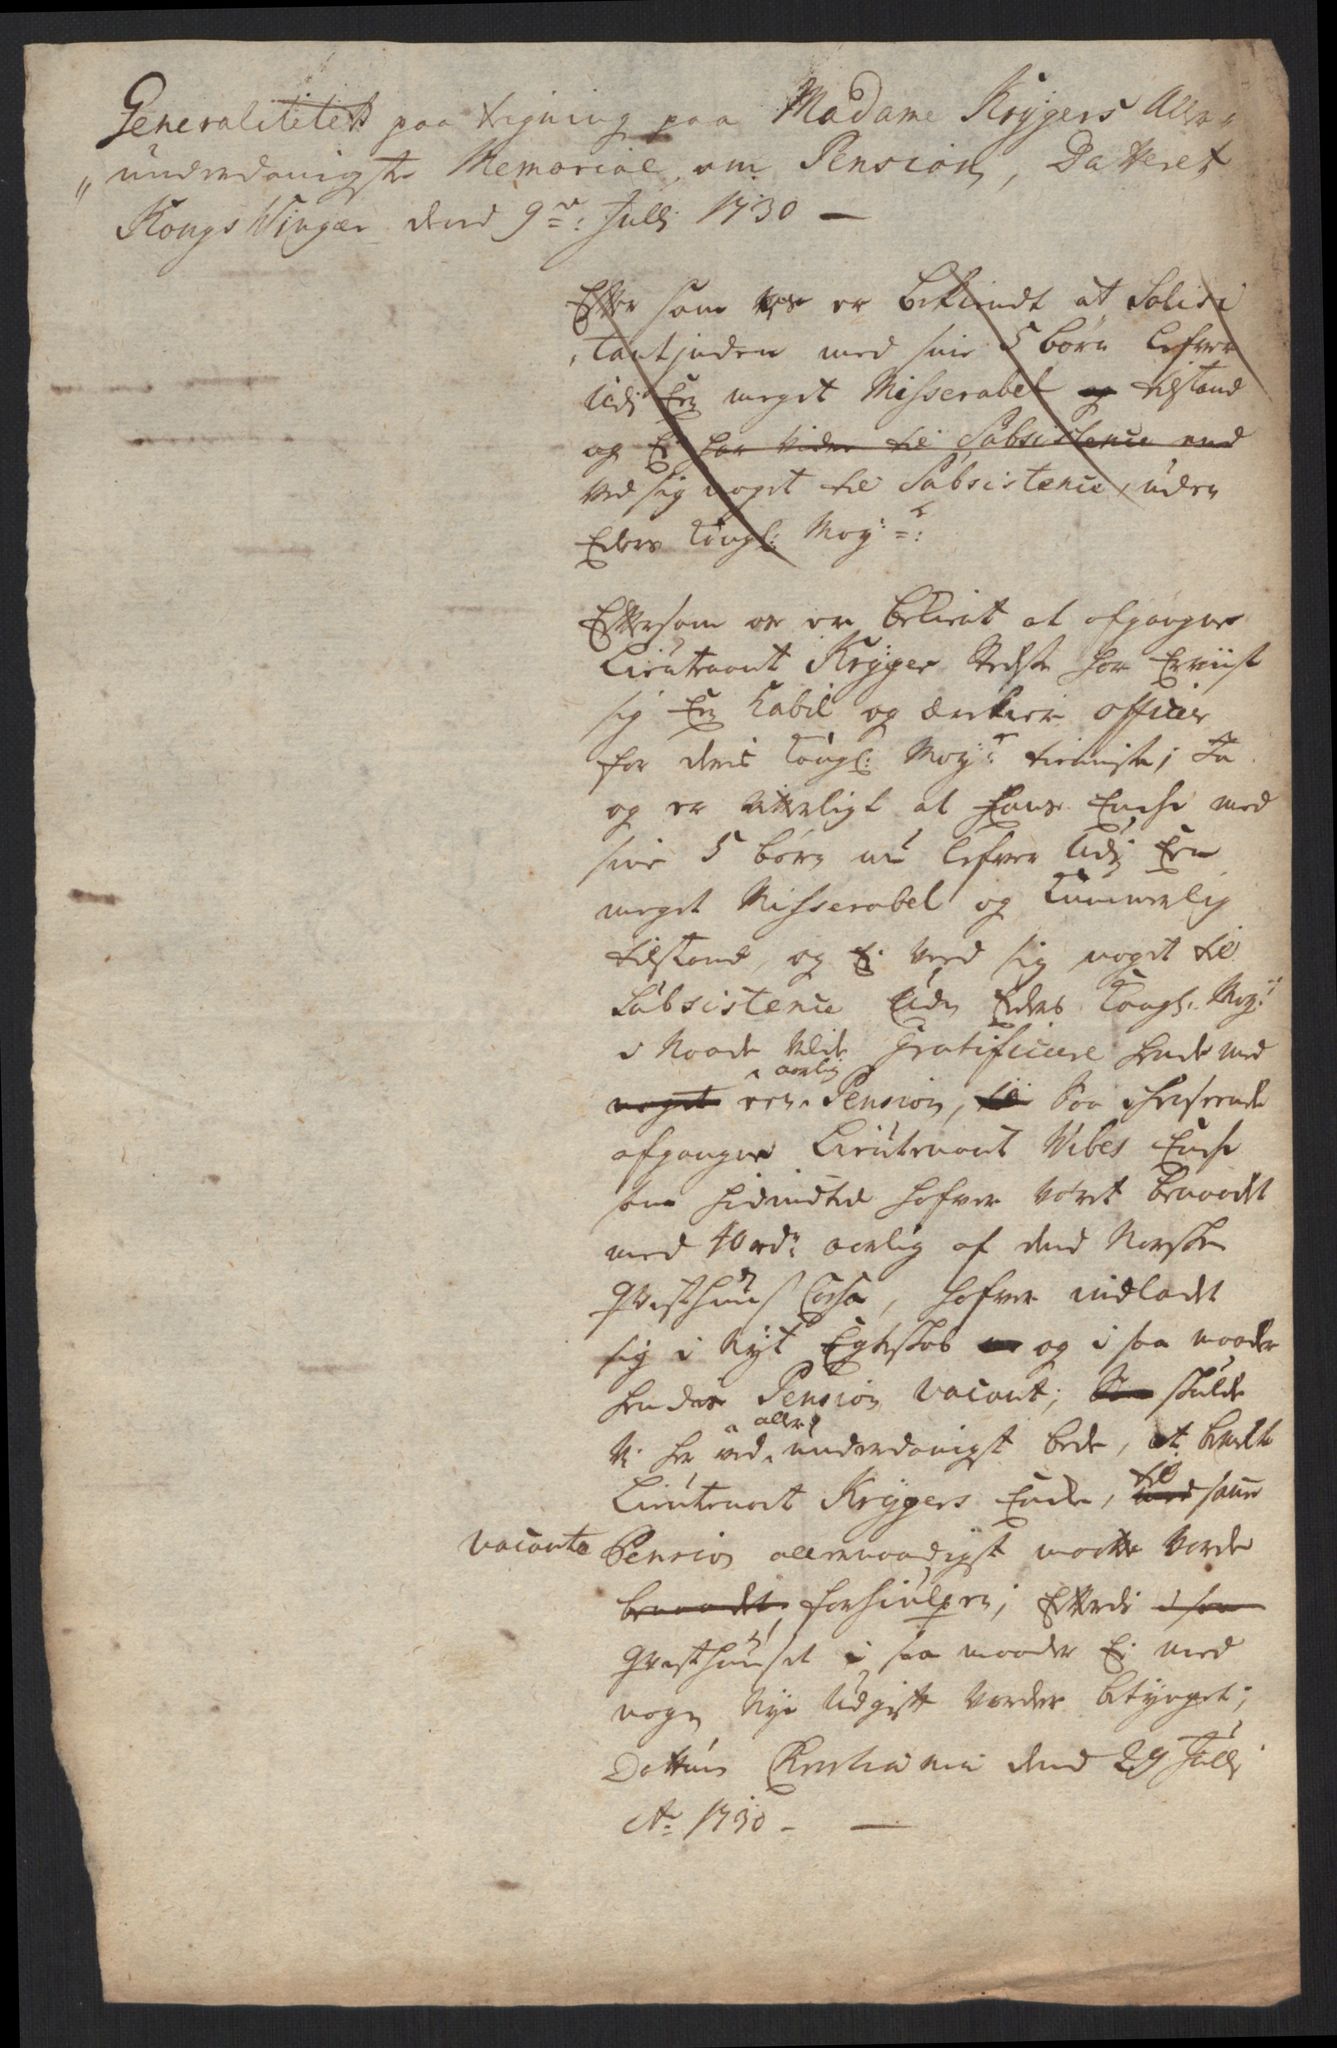 Generalitetets paa tegning paa Madame Krygers Aller-
underdanigste Memorial om Pension, Datteret
KongsWinger dend 9de: Julij 1730 —
Efter som os er bekiendt at Solici
tantinden med sine 5 børn lefver
Udj En meget Misserabel og tilstand
og Ei har viden til Subsistence end
ved sig noget til Subsistence, uden
Eders Kongl: May:ts:
Eftersom os er bekient at afgangne
Lieutenant Kryger stedse har Erviist
sig En Cabil og ærekier officier
for deris Kongl: May:ts tieniste; Saa
og er vitterligt at Hans Encke med
sine 5 børn nu lefver Udj Een
meget Misserabel og kummerlig
tilstand, og Ei veed sig noget til
Subsistence Uden Eders Kongl. May:ts
i Naade vilde Gratificere hende med
noget een aarlig Pension, til Saa eftersom
afgangne Lieutenant Vibes Encke
som hidindtil hafver været benaadet
med 40 rdr aarlig af dend Norske
Qvesthuus Cassa, hafver indladet
sig i Nyt Egteskab og i saa maader
hendes Pension vacant; skulde
Vi her ved allerunderdanigst bede, at bemelte
Lieutenant Krygers Encke, med til samme
vacante Pension allernaadigst maatte vorde
benaadet, forhiulpen; Efterdi i saa
Qvesthuuset i saa maader Ei med
nogen Nye Udgift vorder betynget;
Dattum Christiania dend 29 Julij
Ao 1730 — —